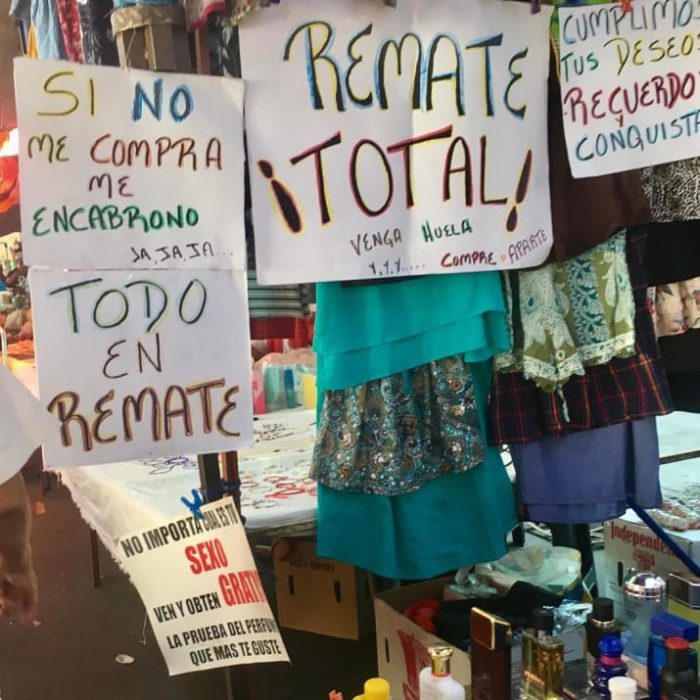 SI NO
ME COMPRA
ME
ENCABRONO
JA, JA, JA...
REMATE
¡TOTAL!
VENGA HUELA
Y, Y, Y..... COMPRE O APARTE
CUMPLIMOS
TUS DESEOS
RECUERDO
Y
CONQUISTA
TODO
EN
REMATE
NO IMPORTA CUAL ES TU
SEXO
VEN Y OBTEN GRATIS
LA PRUEBA DEL PERFUME
QUE MAS TE GUSTE
Independen